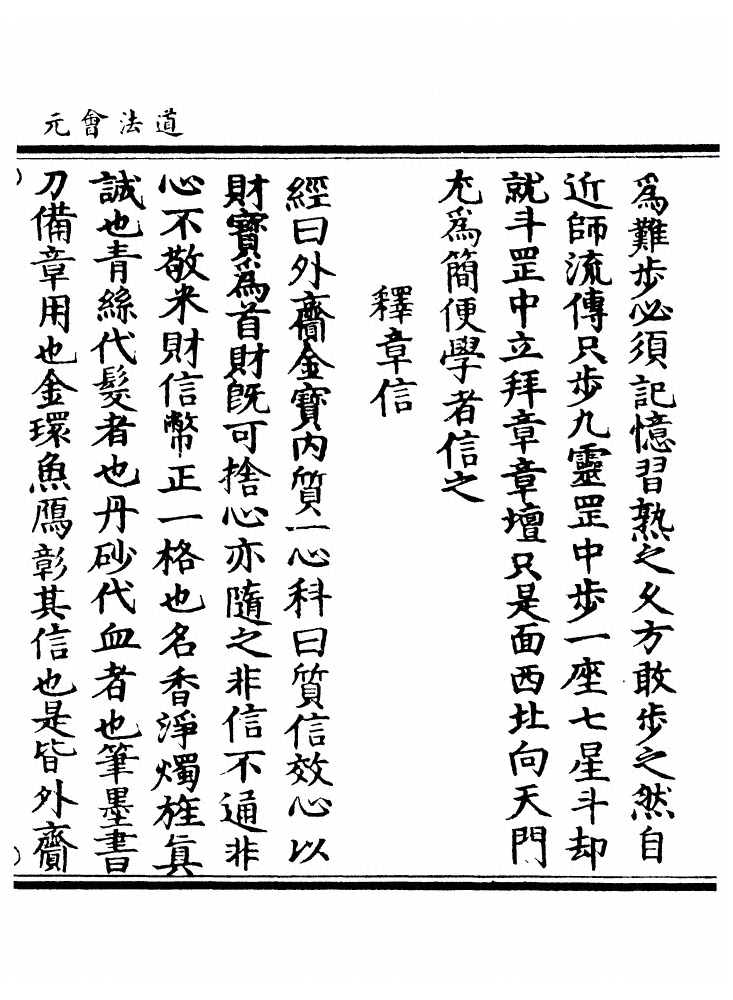 道法會元
為難步必須記憶習熟之久方敢步之然自
近師流傳只步九靈罡中步一座七星斗却
就斗罡中立拜章章壇只是面西北向天門
尤為簡便學者信之
釋章信
經曰外齎金寶內質一心科曰質信效心以
財寶為首財既可捨心亦隨之非信不通非
心不敬米財信幣正一格也名香淨燭旌真
誠也青絲代髮者也丹砂代血者也筆墨書
刀備章用也金環魚鴈彰其信也是皆外齎